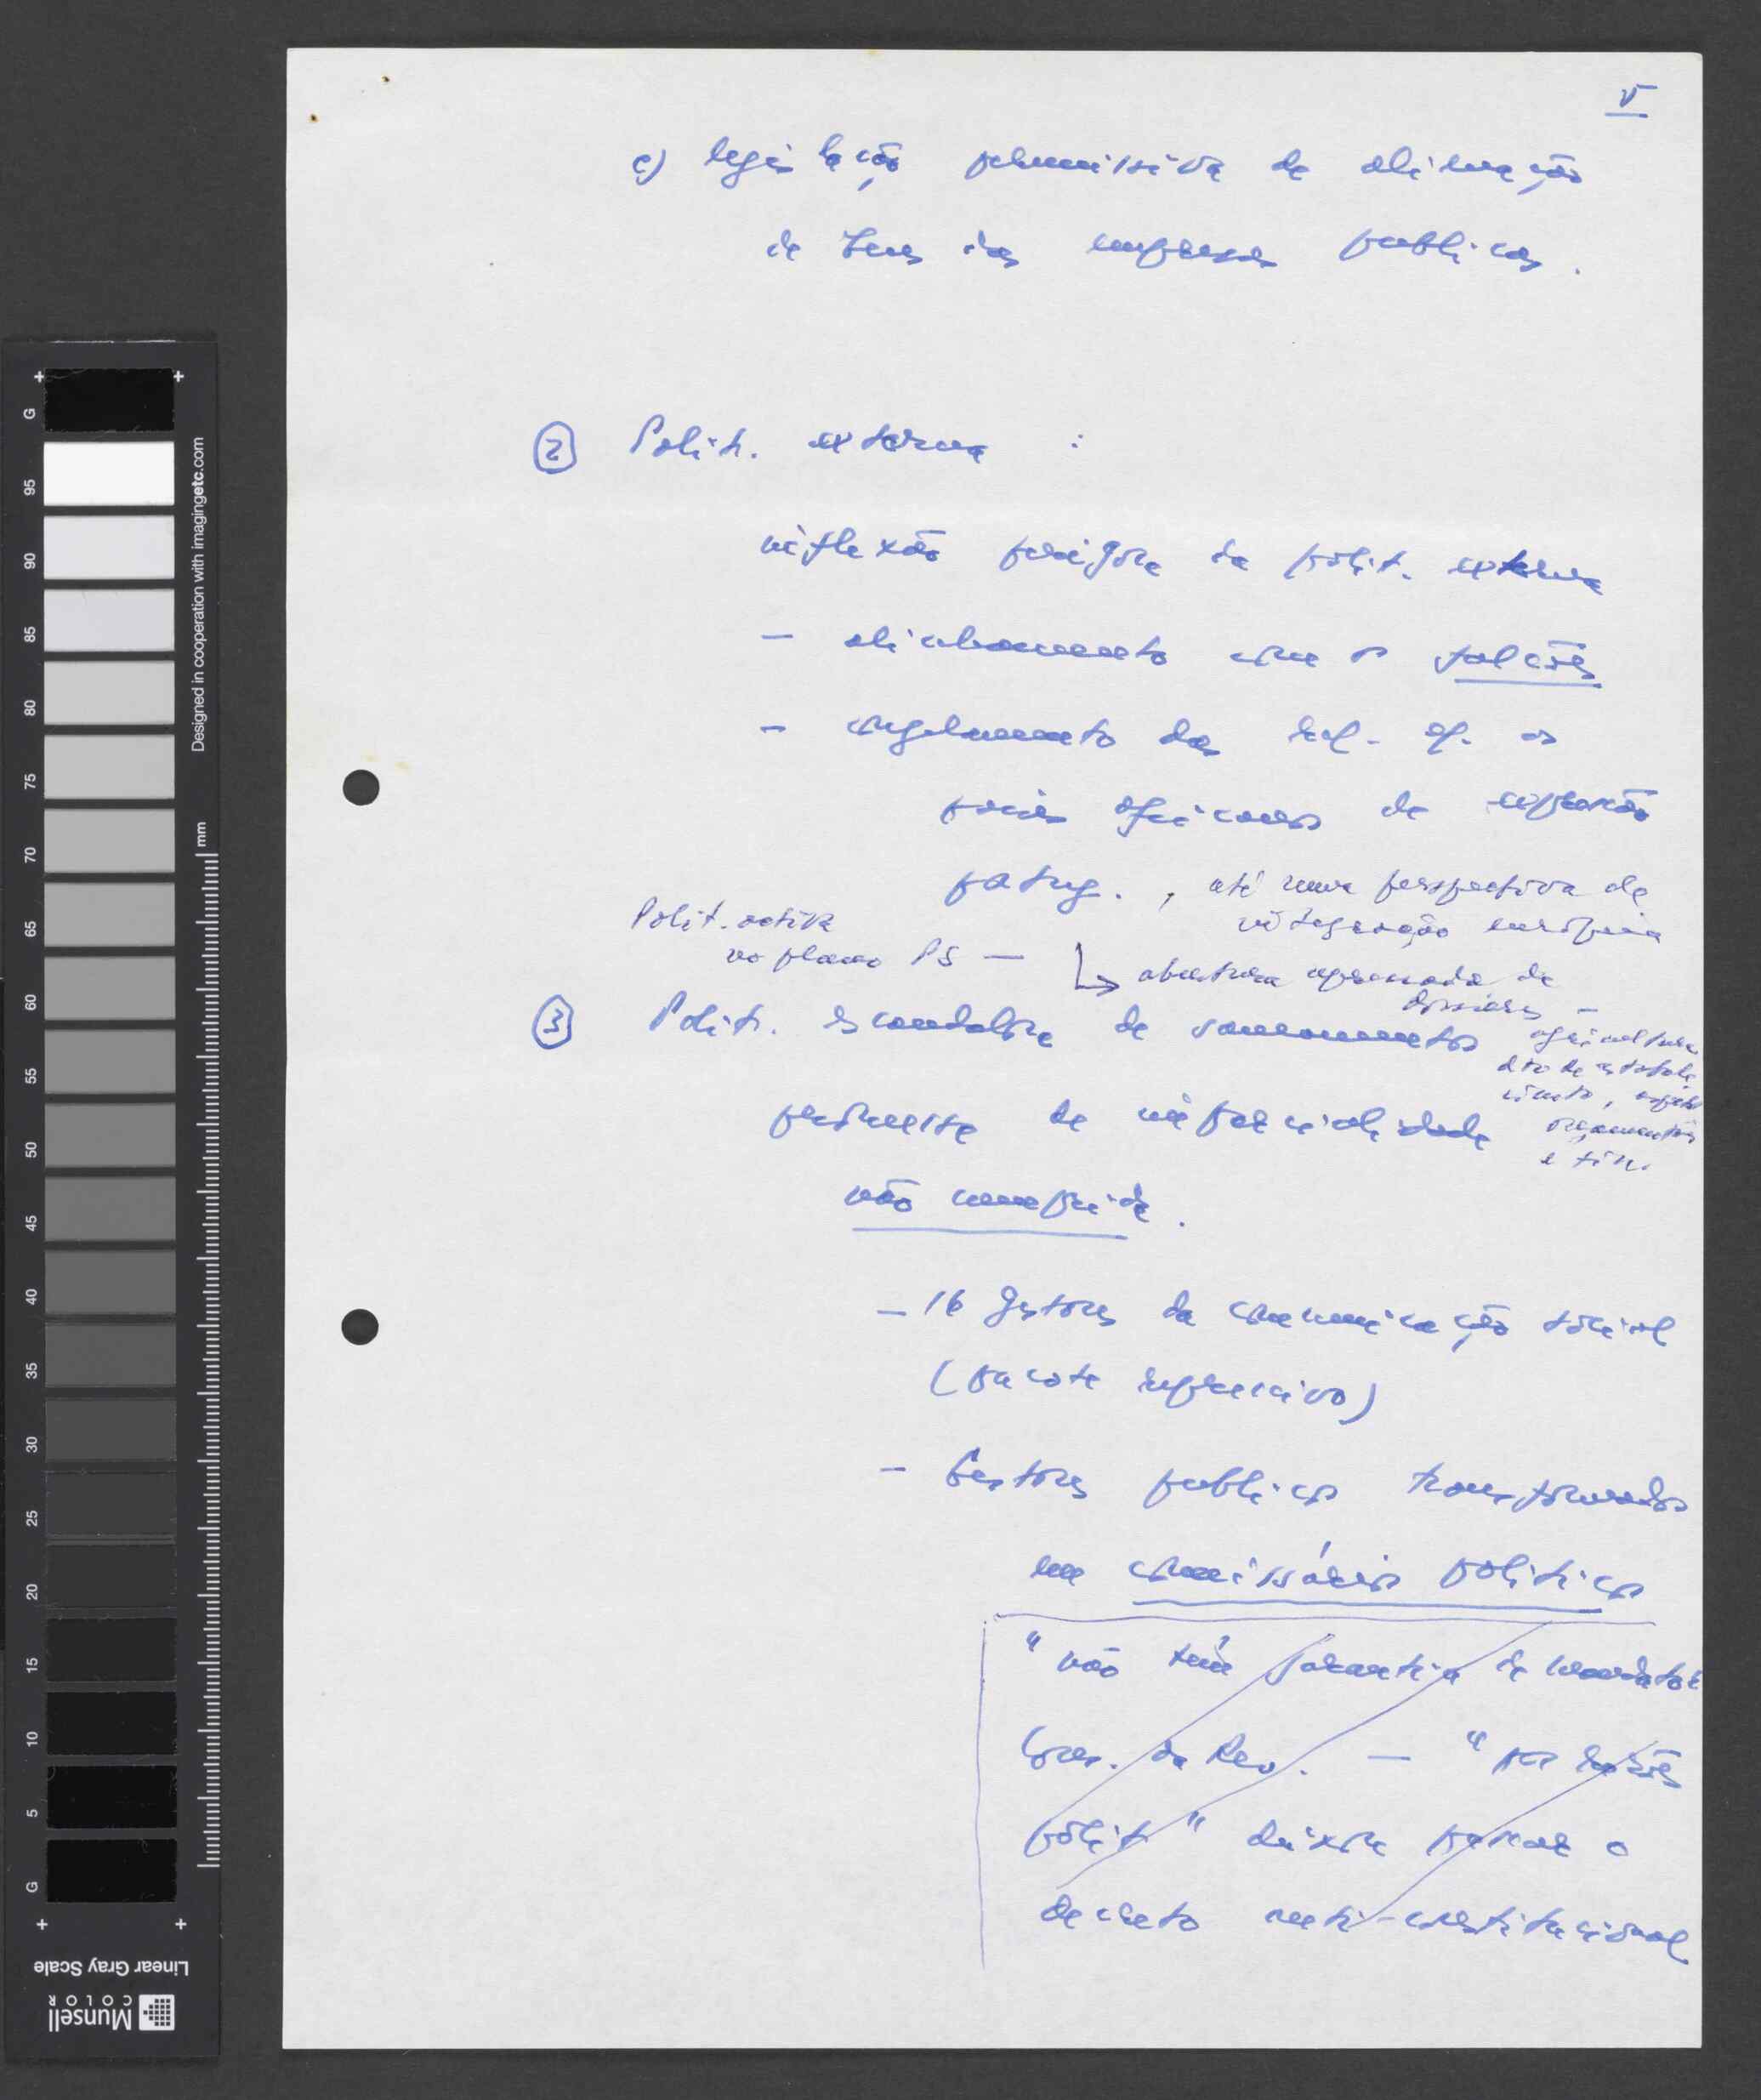 V
c) legislação permissiva de alienação
de bens das empresas publicas.
② Polit. externa :
inflexão perigosa da polit. externa
- alinhamento com os falcões
- congelamento das rel. c/. os
países africanos de expressão
portug. , até numa perspectiva de
integração europeia
Polit. activa
no plano PS —
↳ abertura apressada de
dossiers —
agricultura
dto de estabele
cimento, aspectos
orçamentais
e fin.
③ Polit. escandalosa de saneamentos
promessa de imparcialidade
não cumprida.
- 16 gestores da comunicação social
(pacote repressivo)
- Gestores publicos transformados
em comissários politicos
"não têm garantia de mandato"
Cons. da Rev. — "por razões
polit." deixou passar o
decreto anti-constitucional
Designed in cooperation with imagingetc.com
mm
G
95
90
85
80
75
70
65
60
55
50
45
40
35
30
25
20
15
10
5
G
Linear Gray Scale
Munsell
COLOR